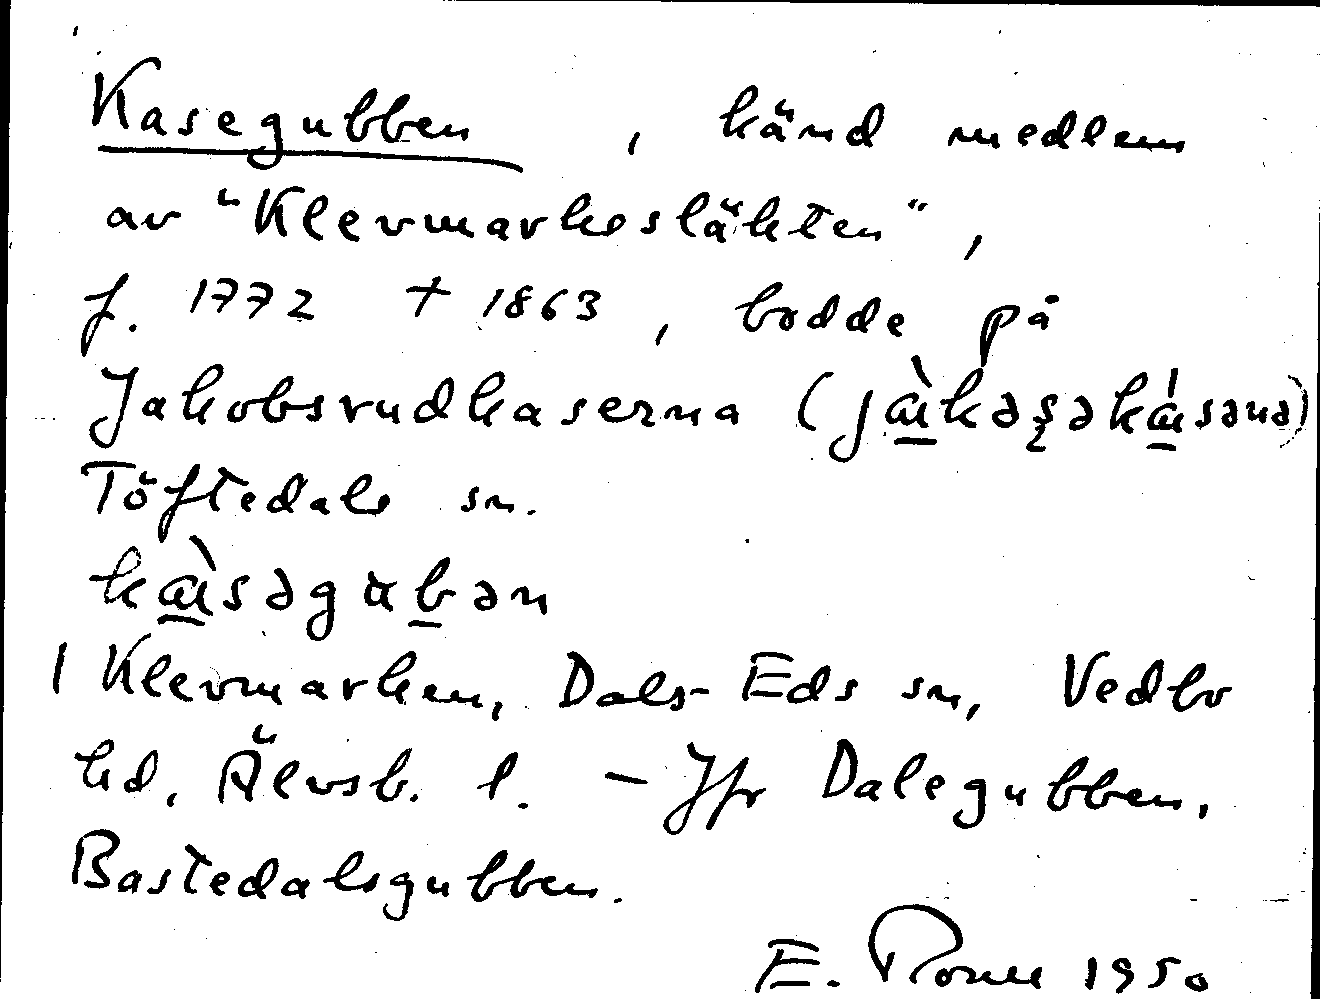 Kasegubben , känd medlem
av "Klevmarkesläkten",
f. 1772 † 1863 , bodde på
Jakobsrudkaserna (
Töftedals sn.
Klevmarken, Dals-Eds sn, Vedbo
hd, Älvsb. l. – Jfr Dalegubben,
Bastedalsgubben.
E. 1950